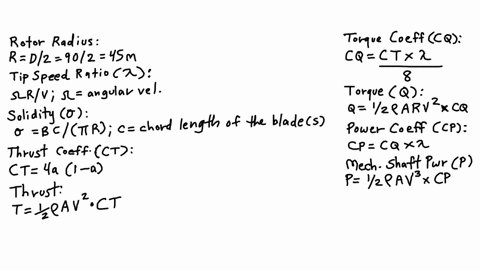 Rotor Radius:
R = D/2 = 90/2 = 45m
Tip Speed Ratio (λ):
ΩR/V; Ω = angular vel.
Solidity (σ):
σ = BC/(πR); c = chord length of the blade(s)
Thrust Coeff. (CT):
CT = 4a (1-a)
Thrust:
T = 1/2 ρAV² · CT
Torque Coeff (CQ):
CQ = CT × λ
8
Torque (Q):
Q = 1/2 ρARV² × CQ
Power Coeff (CP):
CP = CQ × λ
Mech. Shaft Pwr (P)
P = 1/2 ρAV³ × CP